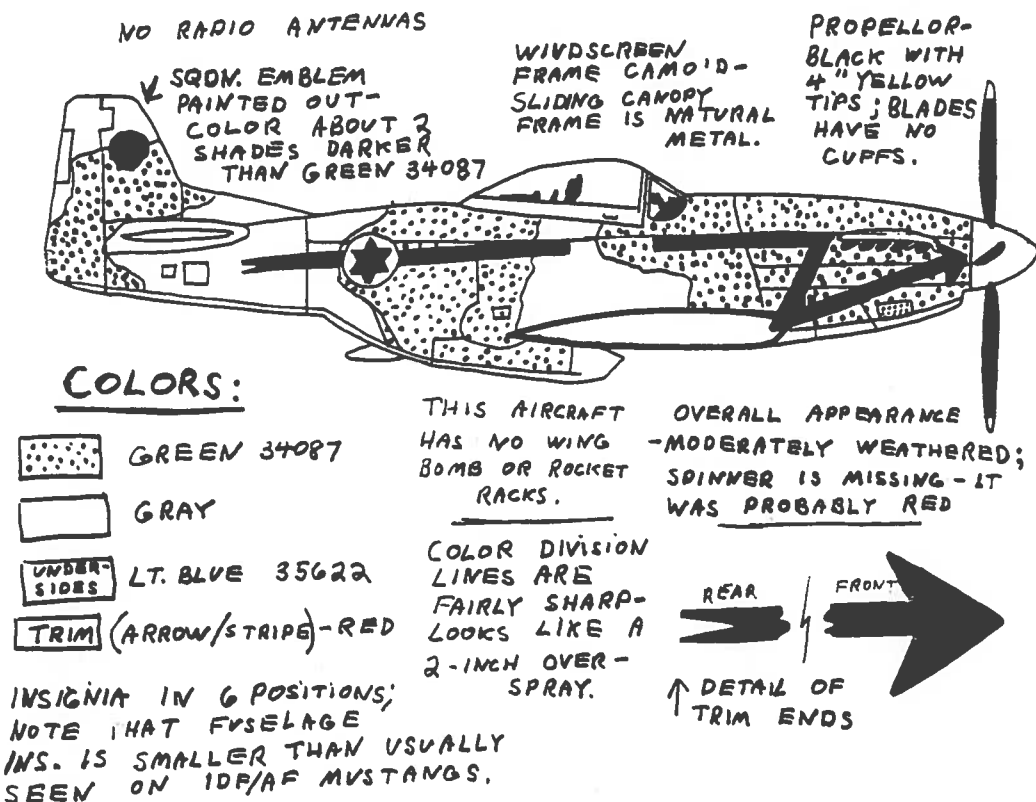 NO RADIO ANTENNAS
SQDN. EMBLEM
PAINTED OUT-
COLOR ABOUT 2
SHADES DARKER
THAN GREEN 34087
WINDSCREEN
FRAME CAMO'D-
SLIDING CANOPY
FRAME IS NATURAL
METAL.
PROPELLOR-
BLACK WITH
4" YELLOW
TIPS; BLADES
HAVE NO
CUFFS.
COLORS:
GREEN 34087
GRAY
UNDER-
SIDES
LT. BLUE 35622
TRIM (ARROW/STRIPE)-RED
INSIGNIA IN 6 POSITIONS;
NOTE THAT FUSELAGE
INS. IS SMALLER THAN USUALLY
SEEN ON IDF/AF MUSTANGS.
THIS AIRCRAFT
HAS NO WING
BOMB OR ROCKET
RACKS.
COLOR DIVISION
LINES ARE
FAIRLY SHARP-
LOOKS LIKE A
2-INCH OVER-
SPRAY.
OVERALL APPEARANCE
-MODERATELY WEATHERED;
SPINNER IS MISSING-IT
WAS PROBABLY RED
REAR
FRONT
↑ DETAIL OF
TRIM ENDS